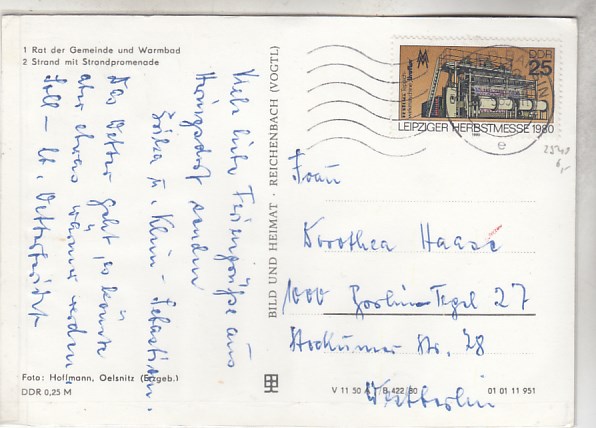 1 Rat der Gemeinde und Warmbad
2 Strand mit Strandpromenade
Viele liebe Feriengrüße aus
Heringsdorf senden
Erika u. Klein-Sebastian.
Das Wetter geht, es könnte
aber etwas wärmer werden.
Soll – lt. Wetterbericht
Foto: Hoffmann, Oelsnitz (Erzgeb.)
DDR 0,25 M
BILD UND HEIMAT · REICHENBACH (VOGTL)
DDR
25
LEIPZIGER HERBSTMESSE 1980
e
Frau
Dorothea Haase
1000 Berlin-Tegel 27
Bockumer Str. 28
Westberlin
V 11 50 A 1/B 422/80 01 01 11 951